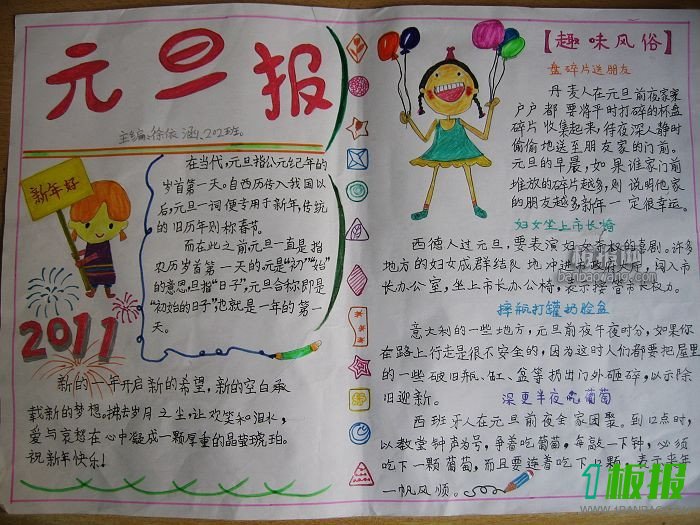 元旦报
主编:徐依涵.202班.
新年好
在当代,元旦指公元纪年的
岁首第一天。自西历传入我国以
后,元旦一词便专用于新年,传统
的旧历年则称春节。
而在此之前元旦一直是指
农历岁首第一天的。元是“初”“始”
的意思,旦指“日子”,元旦合称即是
“初始的日子”也就是一年的第一
天。
2011
新的一年开启新的希望,新的空白承
载新的梦想。拂去岁月之尘,让欢笑和泪水,
爱与哀愁在心中凝成一颗厚重的晶莹琥珀。
祝新年快乐!
【趣味风俗】
盘碎片送朋友
丹麦人在元旦前夜家家
户户都要将平时打碎的杯盘
碎片收集起来,待夜深人静时
偷偷地送至朋友家的门前。
元旦的早晨,如果谁家门前
堆放的碎片越多,则说明他家
的朋友越多新年一定很幸运。
妇女坐上市长椅
西德人过元旦,要表演妇女夺权的喜剧。许多
地方的妇女成群结队地冲进政府大厅,闯入市
长办公室,坐上市长办公椅,表示接管市长权力。
摔瓶打罐扔脸盆
意大利的一些地方,元旦前夜午夜时分,如果你
在路上行走是很不安全的,因为这时人们都要把屋里
的一些破旧瓶、缸、盆等扔出门外砸碎,以示除
旧迎新。
深更半夜吃葡萄
西班牙人在元旦前夜全家团聚。到12点时,
以教堂钟声为号,争着吃葡萄,每敲一下钟,必须
吃下一颗葡萄,而且要连着吃下12颗,表示来年
一帆风顺。
1板报
WWW.1BANBAO.COM